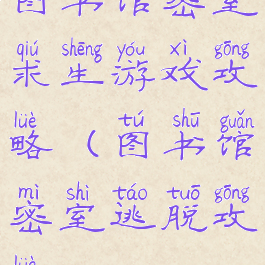 图书馆密室
qiú shēng yóu xì gōng
求生游戏攻
lüè tú shū guǎn
略（图书馆
mì shì táo tuō gōng
密室逃脱攻
lüè